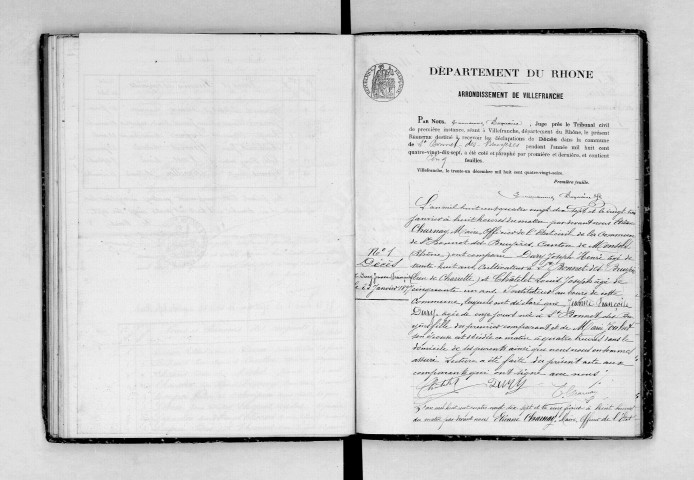 DÉPARTEMENT DU RHONE
ARRONDISSEMENT DE VILLEFRANCHE
PAR NOUS, Juge près le Tribunal civil
de première instance, séant à Villefranche, département du Rhône, le présent
Registre destiné à recevoir les déclarations de Décès dans la commune
de St Bonnet des Bruyères pendant l'année mil huit cent
quatre-vingt-dix-sept, a été coté et paraphé par première et dernière, et contient
cinq feuilles.
Villefranche, le trente un décembre mil huit cent quatre-vingt-seize.
Première feuille.
L'an mil huit cent quatre vingt dix sept et le vingt trois
janvier à huit heures du matin par devant nous Etienne
Charnay Maire, Officier de l'Etat civil de la Commune
de St Bonnet des Bruyères, Canton de Monsols
Rhône, sont comparu Dury Joseph Remie âgé de
trente huit ans, Cultivateur à St Bonnet des Bruyères
lieu de et Châtelet Louis Joseph âgé de
cinquante un ans, Instituteur au bourg de cette
Commune, lesquels ont déclaré que Jeannie Françoise
Dury âgée de onze jours née à St Bonnet des Bru
yères fille du premier comparant et de Marie
son épouse est décédée ce matin à quatre heures dans le
domicile de ses parents ainsi que nous nous en sommes
assuré. Lecture a été faite du présent acte aux
comparants qui ont signé avec nous.
N° 1
Décès
Dury
le 23 janvier
Châtelet DURY Charnay
L'an mil huit cent quatre vingt dix sept et le
du matin par devant nous Etienne Charnay, Maire, Officier de l'Etat